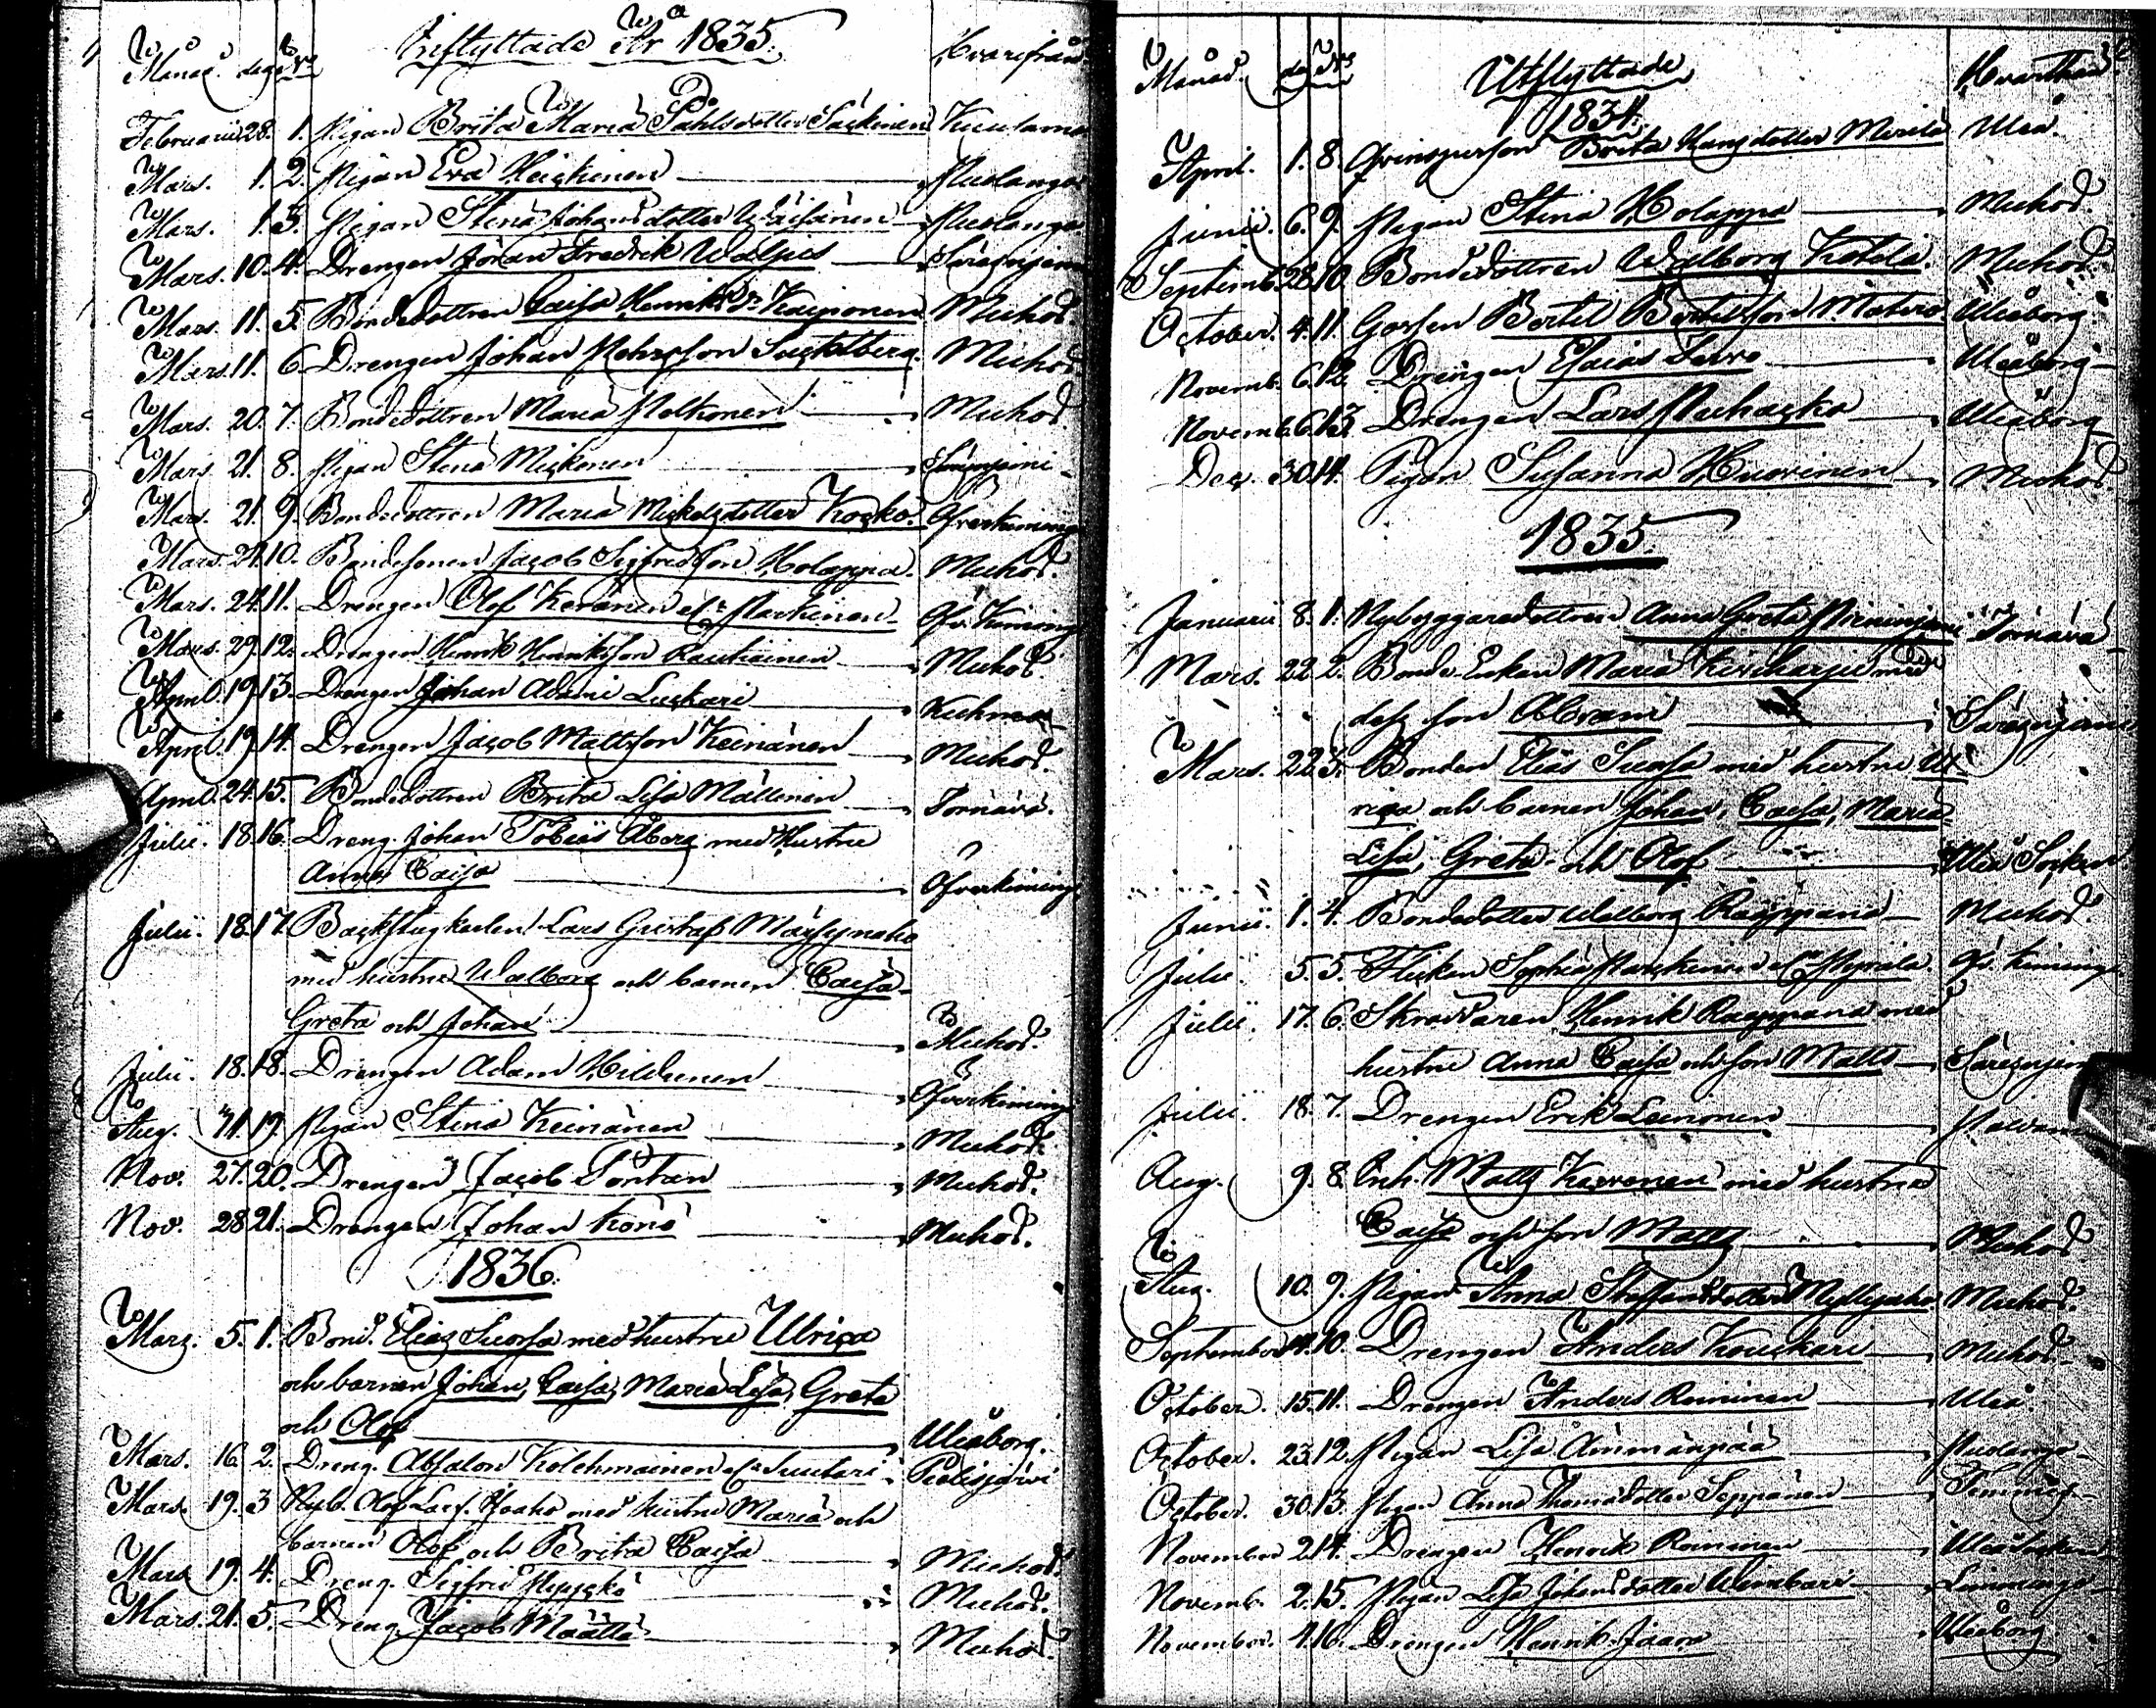 Inflyttade År 1835.
Månad. dag. No Hvarifrån
Februarii 28. 1. Pigan Brita Maria Påhlsdotter Säckinen Kuusamo
Mars. 1. 2. Pigan Eva Heickinen Pudasn
Mars. 1. 3. Pigan Stina Johansdotter Wäisänen
Mars. 10. 4. Drengen Jöran Fredrik Waljus Säresniemi
Mars. 11. 5. Bondedottren Caisa Henriksdr Kaiponen Muhos.
Mars. 11. 6. Drengen Johan Johansson Muhos.
Mars. 20. 7. Bondedottren Maria Pelkonen Muhos
Mars. 21. 8. Pigan Stina Mickonen Säresniemi
Mars. 21. 9. Bondedottren Maria Mickelsdotter Kocko. Öfverkiminge
Mars. 24. 10. Bondesonen Jacob Sigfridsson Holappa. Muhos.
Mars. 24. 11. Drengen Olof Keränen el. Parkinen Öfv. Kiminge
Mars. 29. 12. Drengen Henrik Henriksson Rautiainen Muhos.
April. 19. 13. Drengen Johan Adami Luckari Kuhmo
April. 19. 14. Drengen Jacob Mattsson Keinänen Muhos.
April. 24. 15. Bondedottren Brita Lisa Mällinen Tornävä.
Julii. 18. 16. Dreng. Johan Tobias Åberg med Hustru
Anna Caisa Öfverkiminge
Julii. 18. 17. Backstugkarlen Lars Gustaf
med hustru Walborg och barnen Caisa
Greta och Johan Muhos.
Julii. 18. 18. Drengen Adam Hildunen Öfverkiminge
Aug. 19. Pigan Stina Keinänen Muhos.
Nov. 27. 20. Drengen Jacob Tortan Muhos.
Nov. 28. 21. Drengen Johan Könö Muhos.
1836.
Mars. 5. 1. Bond. Elias Suorsa med hustru Ulrica
och barnen Johan, Caisa, Maria Lisa, Greta
och Olof Uleåborg.
Mars. 16. 2. Dreng. Absalon Kolehmainen el. Suutari Pielisjärvi
Mars. 19. 3 Nyb. Olof Lars. Hoako med hustru Maria och
barnen Olof och Brita Caisa Muhos.
Mars 19. 4. Dreng. Sigfrid Muhos.
Mars. 21. 5. Dreng. Jacob Määttä Muhos.
Månad. dag No Utflyttade Hvarthän
1834.
April. 1. 8. Qvinsperson Brita Hansdotter Merilä Uleå.
Junii. 6. 9. Pigan Stina Holappa Muhos.
Septemb. 28. 10. Bondedottren Walborg Kotila. Muhos.
October. 4. 11. Gossen Bertil Bertilsson Matero Uleåborg
Novemb. 6. 12. Drengen Esaias Uleåborg
Novemb. 6. 13. Drengen Lars Uleåborg
Dec. 30. 14. Pigan Susanna Huovinen Muhos.
1835.
Januarii 8. 1. Nybyggaredottren Anna Greta Tornävä
Mars. 22. 2. Bonde-Enkan Maria med
dess son Abram Säresniemi
Mars. 22. 3. Bonden Elias Suorsa med hustru Ul-
rica och barnen Johan, Caisa, Maria
Lisa, Greta och Olof Uleå Socken
Junii. 1. 4. Bondedotter Walborg Räppänä Muhos.
Julii. 5. 5. Flickan Sophia Öfv. Kiminge
Julii. 17. 6. Skräddaren Henrik Raappana med
hustru Anna Caisa och son Matts Säresniemi
Julii. 18. 7. Drengen Erik Leinonen Paldamo
Aug. 9. 8. Inh. Matts Karvonen med hustru
Caisa och son Matts Muhos
Aug. 10. 9. Pigan Anna Staffansdotter Myllyaho Muhos.
September 10. Drengen Anders Kouckari Muhos.
October. 15. 11. Drengen Anders Roininen Uleå.
October. 23. 12. Pigan Lisa Ämmänpää
October. 30. 13. Pigan Anna Thomædotter Seppänen Temmes
November 2. 14. Drengen Henrik Roininen Uleå Socken
Novemb. 2. 15. Pigan Lisa Johansdotter Limmingo
November. 4. 16. Drengen Henrik Jaara Uleåborg